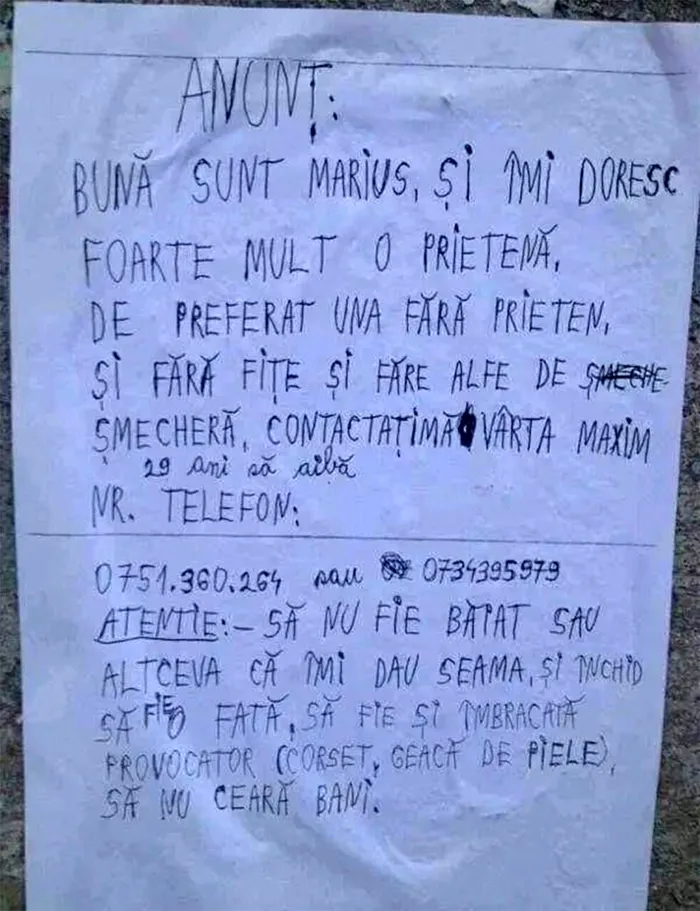 ANUNȚ:
BUNĂ SUNT MARIUS, ȘI ÎMI DORESC
FOARTE MULT O PRIETENĂ,
DE PREFERAT UNA FĂRĂ PRIETEN,
ȘI FĂRĂ FIȚE ȘI FĂRE ALFE DE ȘMECHE
ȘMECHERĂ, CONTACTAȚIMĂ VÂRTA MAXIM
29 ani să aibă
NR. TELEFON:
0751.360.264 sau 0734395979
ATENTIE:- SĂ NU FIE BĂIAT SAU
ALTCEVA CĂ ÎMI DAU SEAMA, ȘI ÎNCHID
SĂ FIE O FATĂ, SĂ FIE ȘI ÎMBRACATĂ
PROVOCATOR (CORSET, GEACĂ DE PIELE),
SĂ NU CEARĂ BANI.